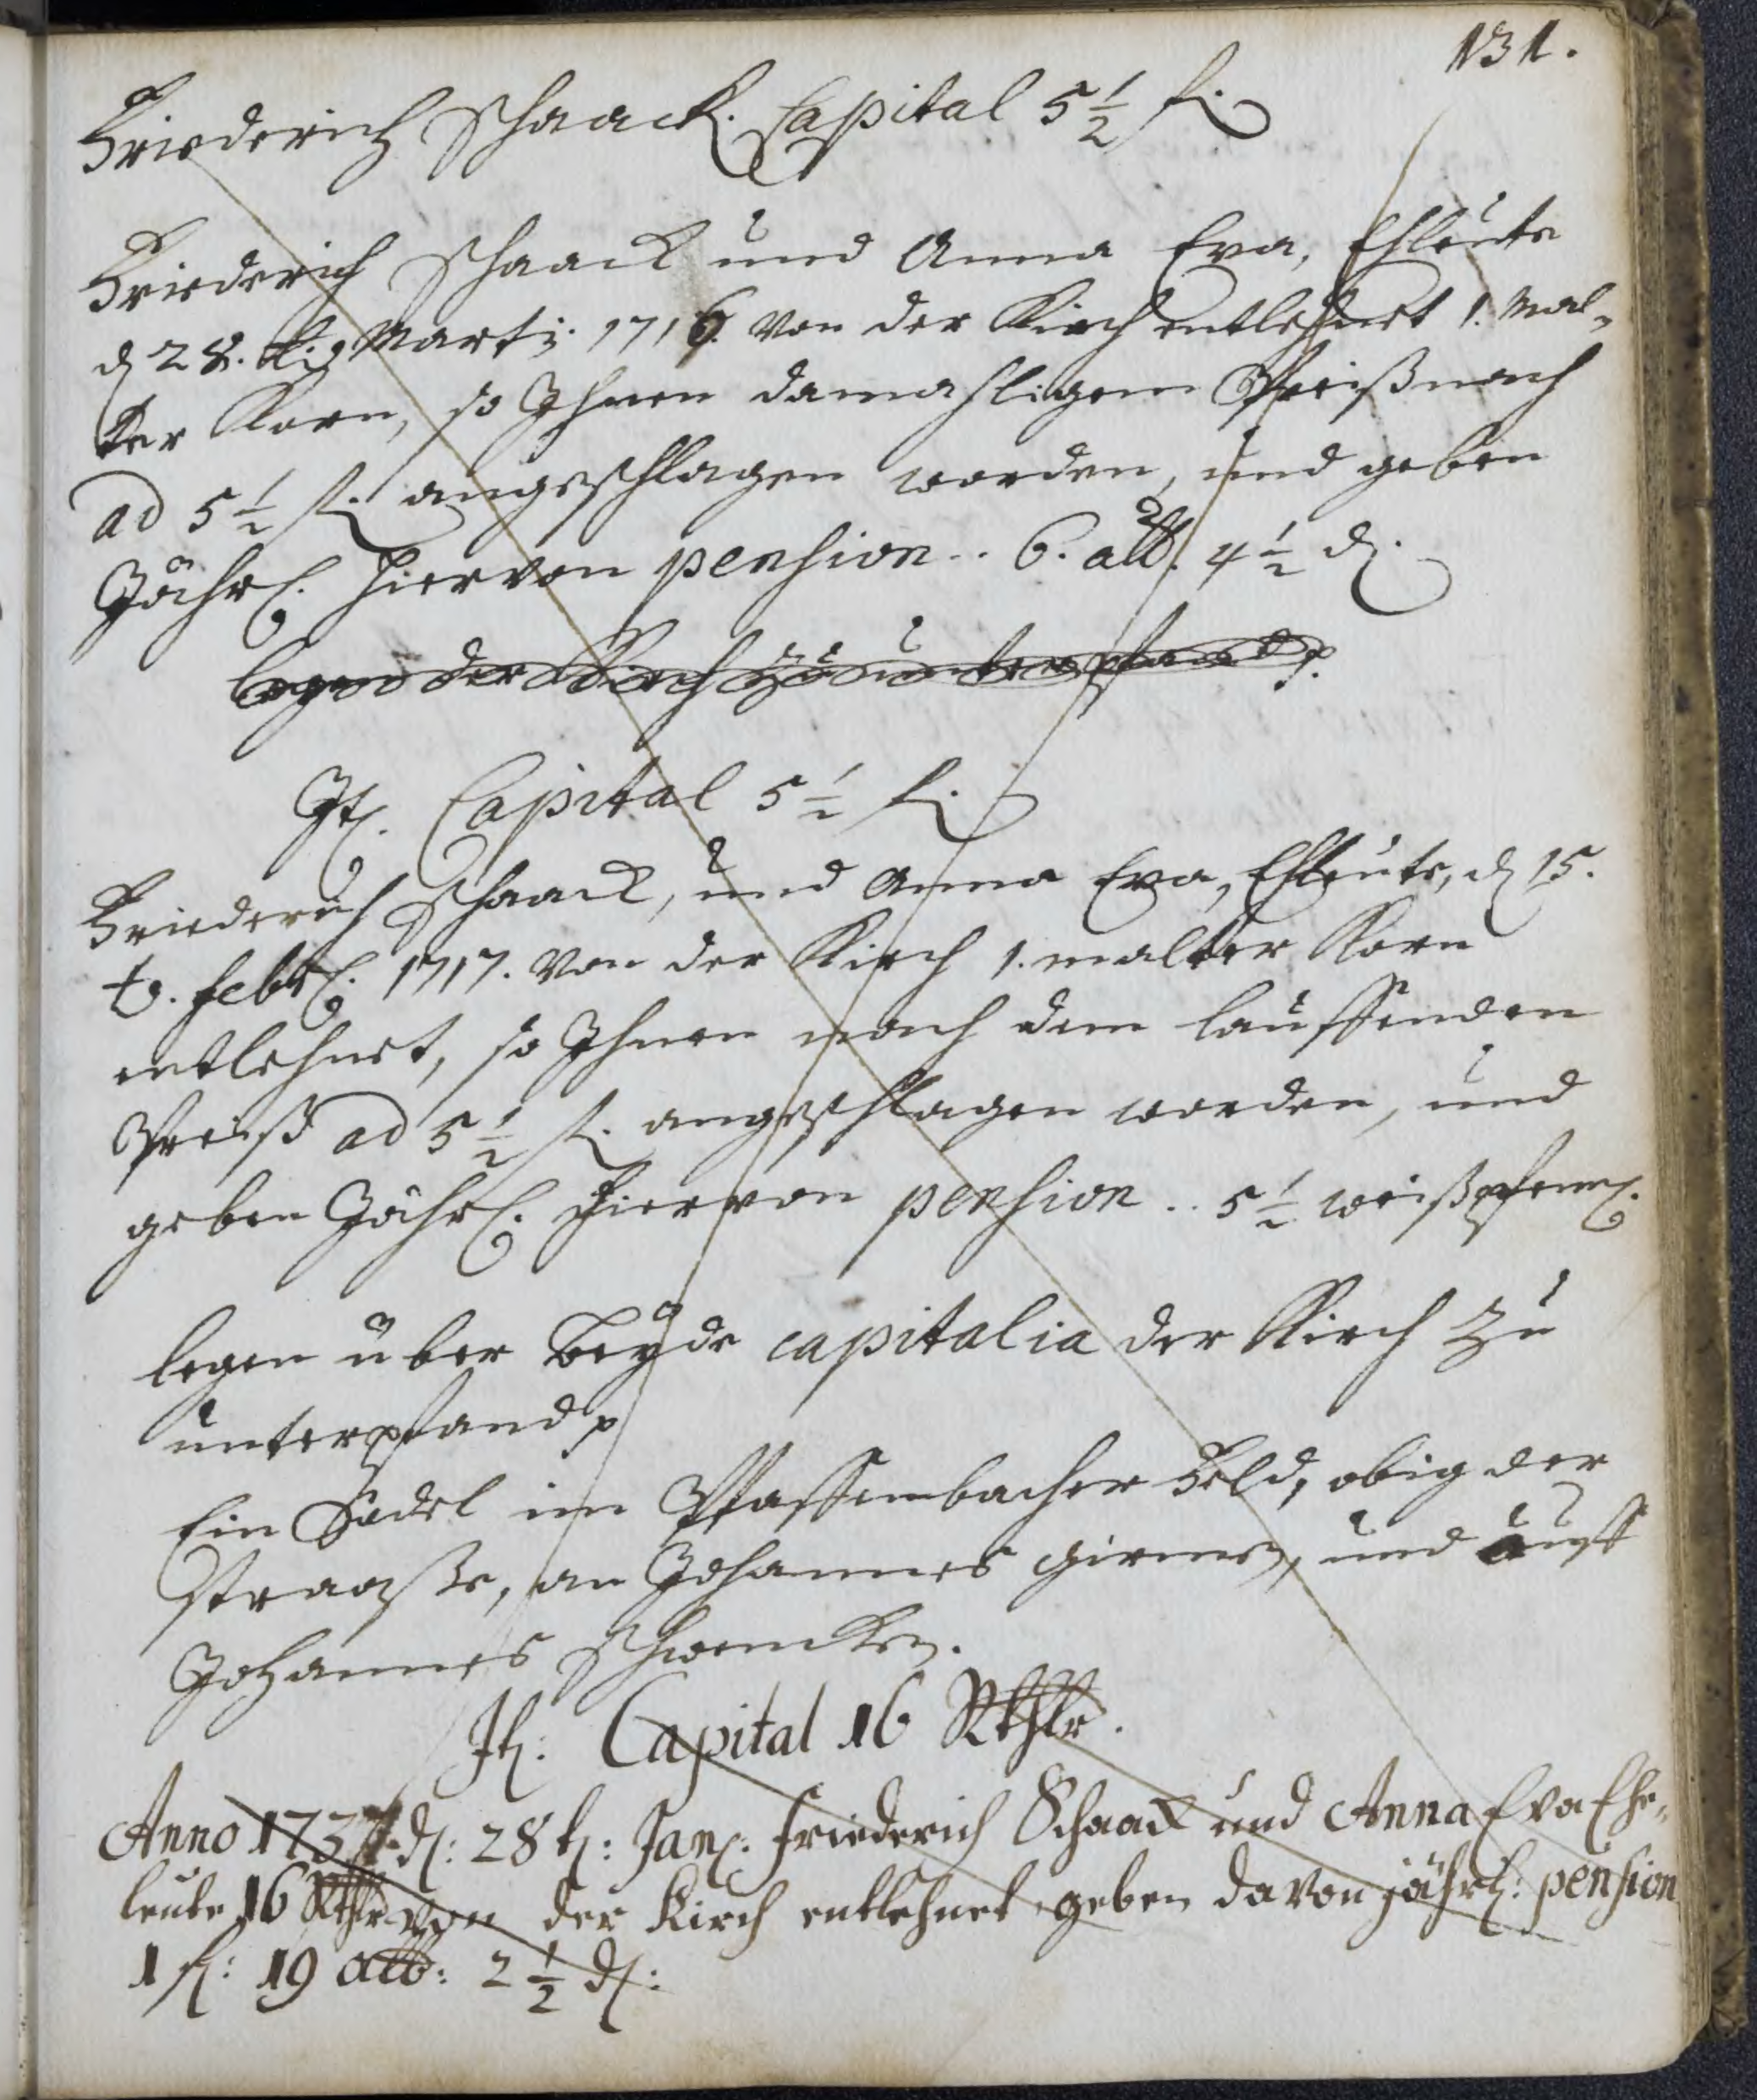 131.
Friederich Schaack. Capital 5 1/2 fl.
Friederich Schaack und Anna Eva, Ehleute
d 28. tis Martij. 1716. von der Kirch entlehnet 1. Mal-
ter Korn, so Ihnen damahligem Preiß nach
ad 5 1/2 fl. angeschlagen worden, und geben
Jährl. hiervon pension .. 6. alb. 4 1/2 d.
legen der Kirch zu unterpfand p.
It. Capital 5 1/2 fl.
Friederich Schaack, und Anna Eva, Ehleute, d 15.
t. febr. 1717. von der Kirch 1. malter Korn
entlehnet, so Ihnen nach dem lauffenden
Preiß ad 5 1/2 fl. angeschlagen worden, und
geben Jährl. hiervon pension .. 5 1/2 weißpfenn.
legen über beyde capitalia der Kirch zu
unterpfand p
Ein Sadel im Pfaffenbacher feld, obig der
straaße, an Johannes und auff
Johannes
It: Capital 16 Rthlr.
Anno 1737. d: 28 t: Jan: Friederich Schaack und Anna Eva Ehe-
leute 16 Rthlr von der Kirch entlehnet geben davon jährl: pension
1 fl: 19 alb: 2 1/2 d: